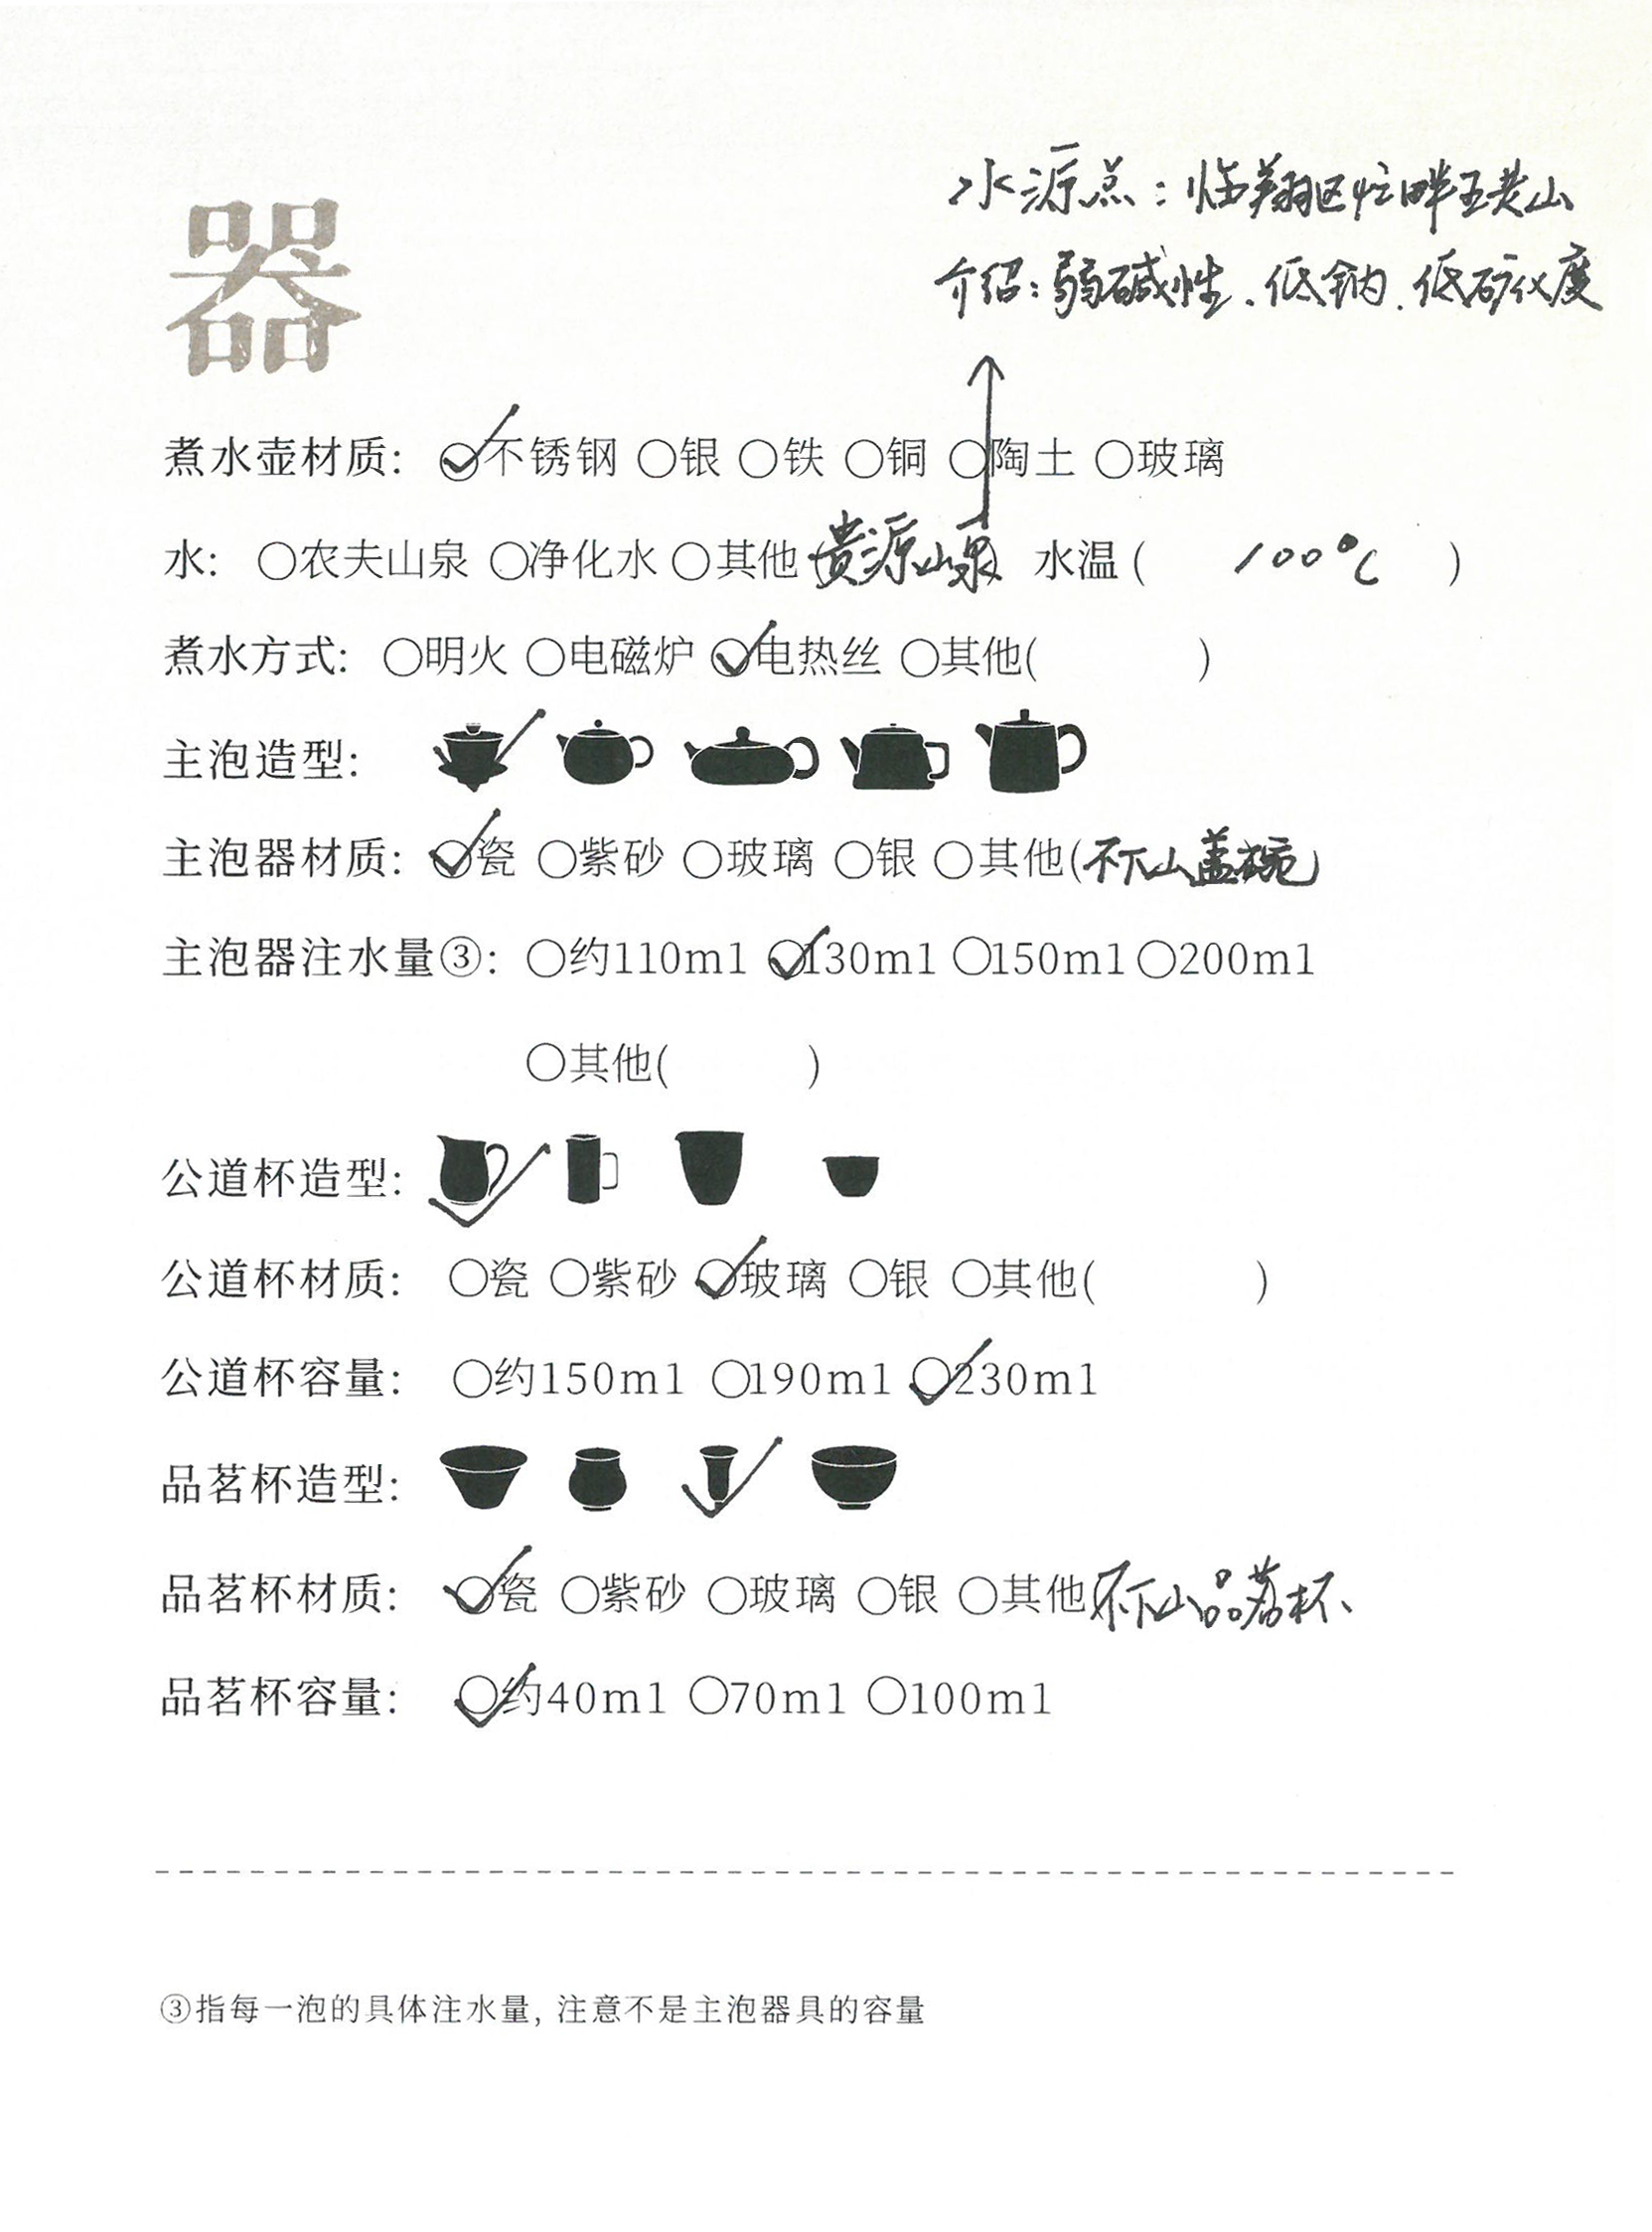 水源点：临翔区忙畔五老山
介绍：弱碱性、低钠、低矿化度
器
煮水壶材质: ○不锈钢 ○银 ○铁 ○铜 ○陶土 ○玻璃
水: ○农夫山泉 ○净化水 ○其他 贵源山泉 水温( 100℃ )
煮水方式: ○明火 ○电磁炉 ○电热丝 ○其他( )
主泡造型:
主泡器材质: ○瓷 ○紫砂 ○玻璃 ○银 ○其他(不下山盖碗)
主泡器注水量③: ○约110ml ○130ml ○150ml ○200ml
○其他( )
公道杯造型:
公道杯材质: ○瓷 ○紫砂 ○玻璃 ○银 ○其他( )
公道杯容量: ○约150ml ○190ml ○230ml
品茗杯造型:
品茗杯材质: ○瓷 ○紫砂 ○玻璃 ○银 ○其他 不下山品茗杯
品茗杯容量: ○约40ml ○70ml ○100ml
③指每一泡的具体注水量, 注意不是主泡器具的容量